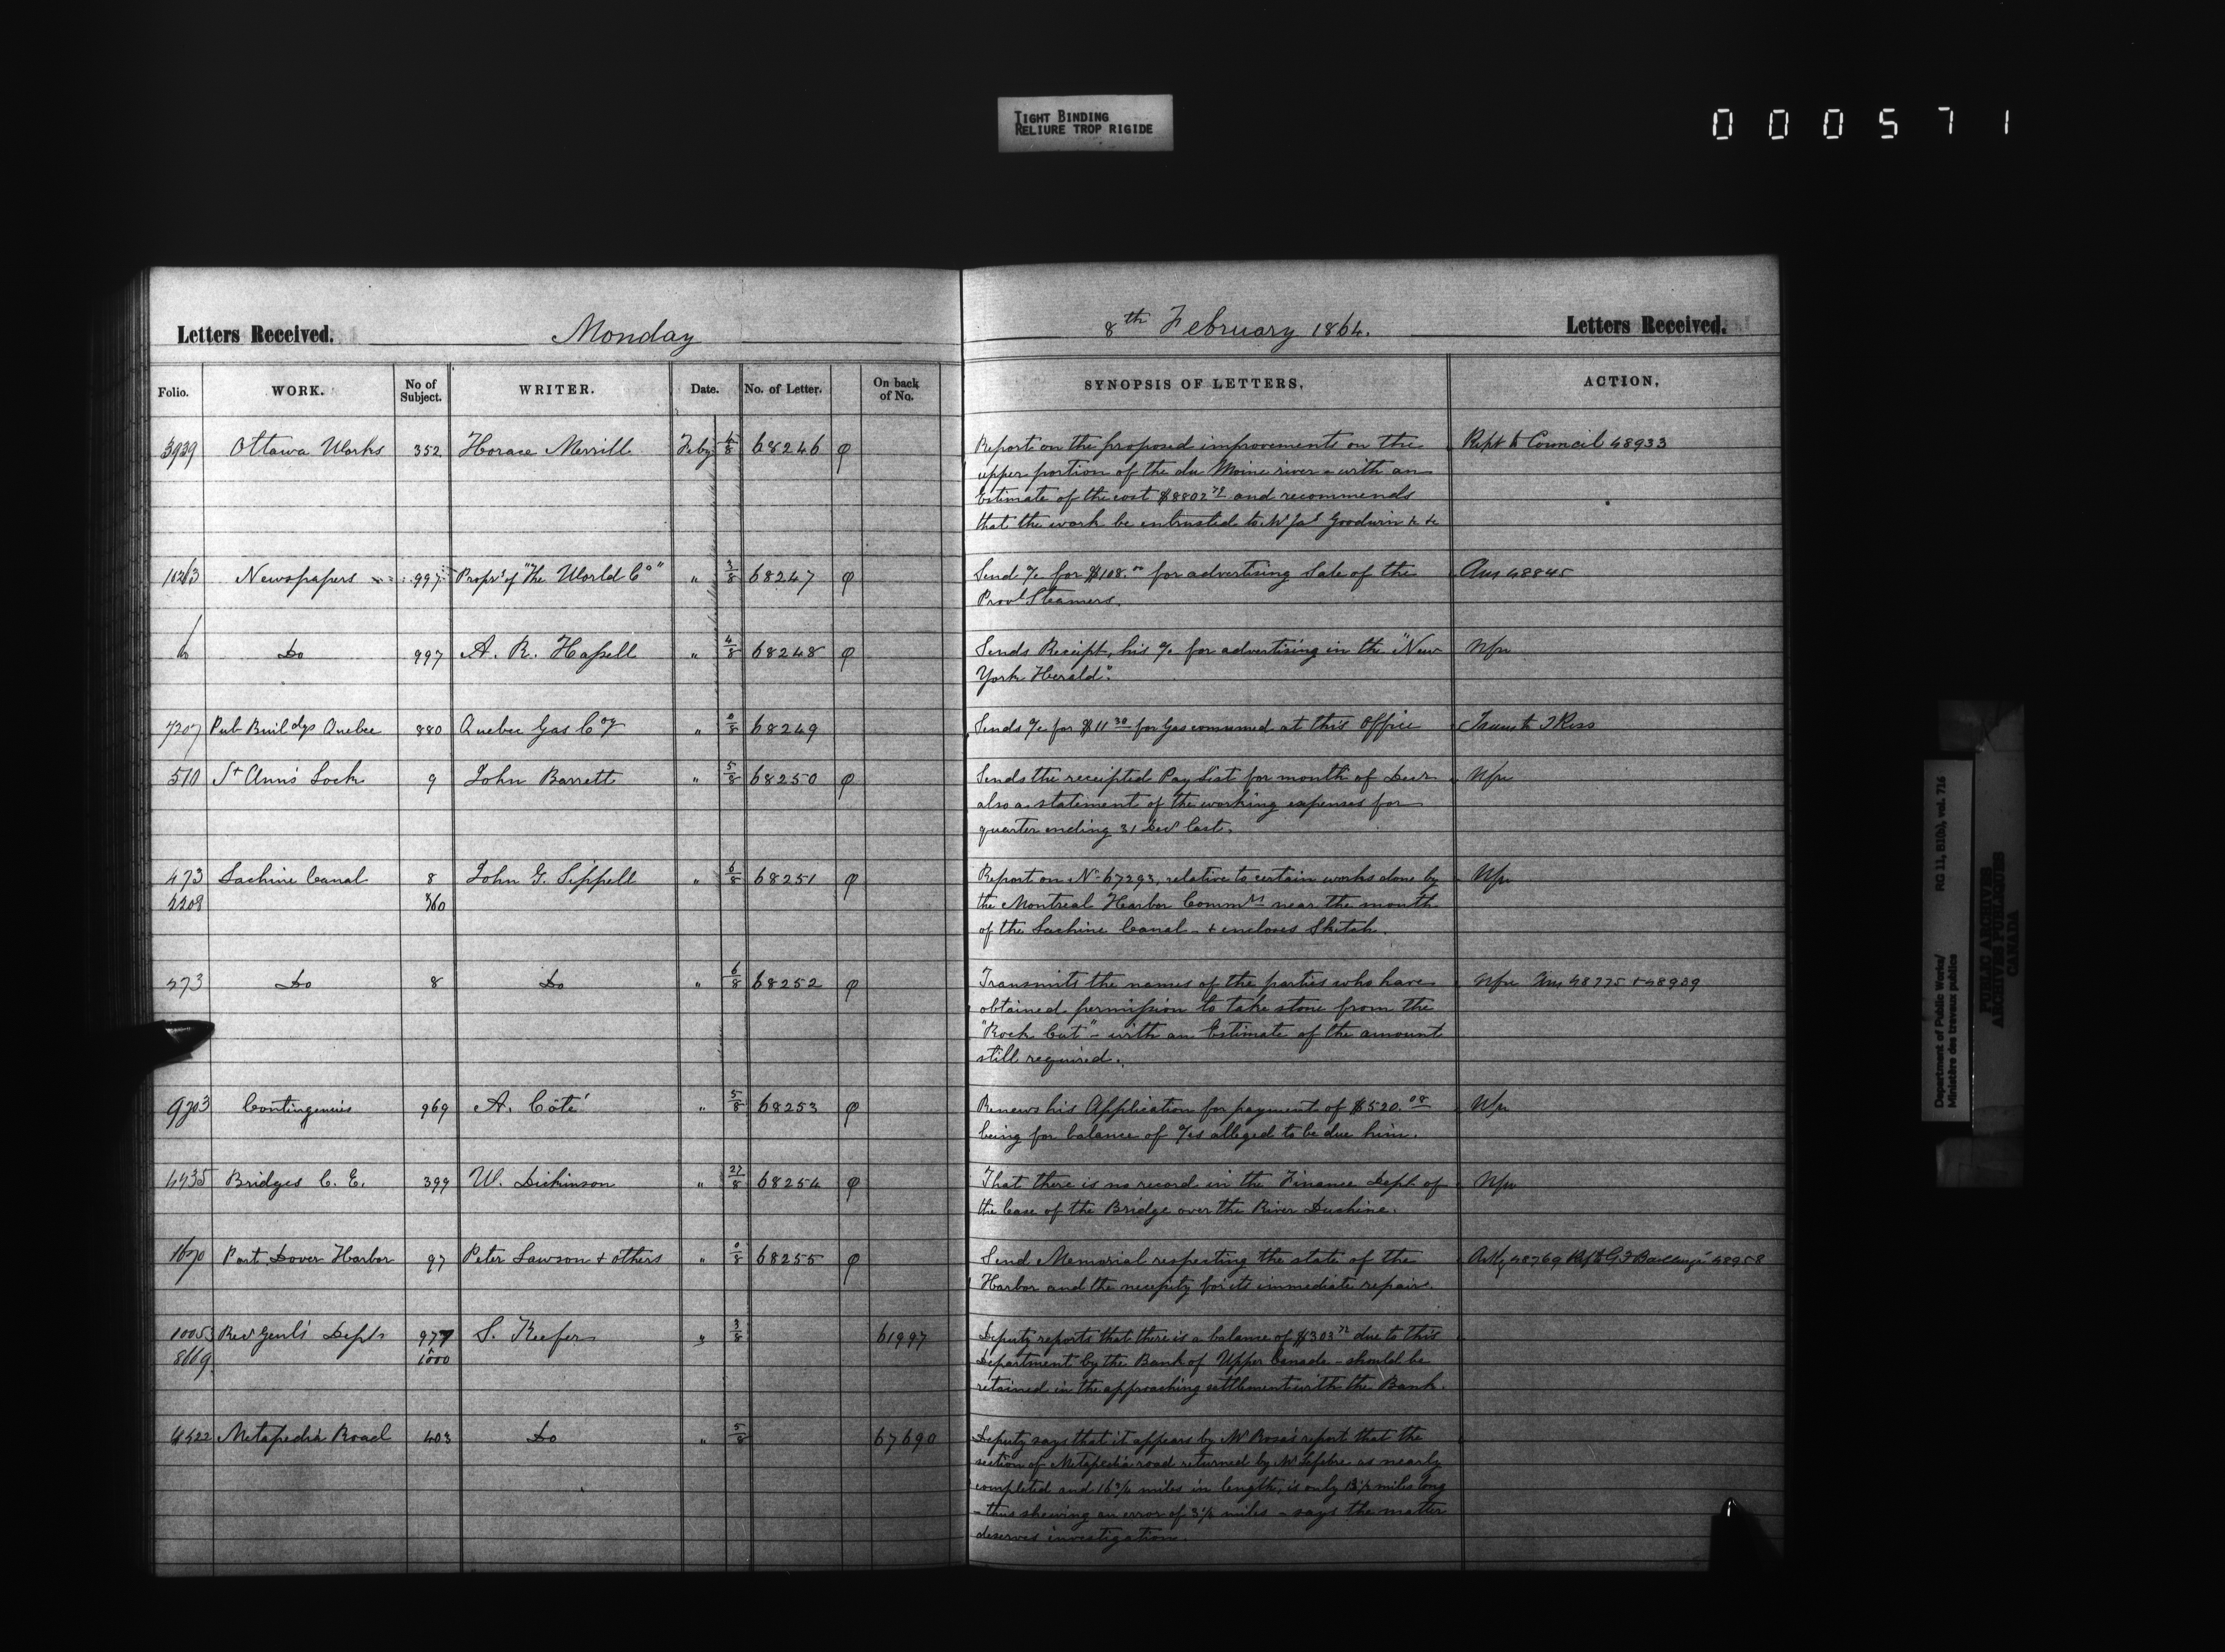 TIGHT BINDING
RELIURE TROP RIGIDE
000571
Letters Received. Monday 8th February 1864. Letters Received.
Folio. WORK. No of Subject. WRITER. Date. No. of Letter. On back of No. SYNOPSIS OF LETTERS. ACTION.
3939 Ottawa Works 352 Horace Merrill Feby 4/8 68246 φ Report on the proposed improvements on the Rept to Council 48933
upper portion of the du Moine river - with an
Estimate of the cost $8802 and recommends
that the work be entrusted to Mr Jas Goodwin &c &c
Newspapers 997 Proprs of "The World Co" " 3/8 68247 φ Send a/c for $108.00 for advertising Sale of the Ans 48845
Provl Steamers.
Do 997 A. R. Hassell " 4/8 68248 φ Sends Receipt, his a/c for advertising in the "New
York Herald".
7207 Pub Buildgs Quebec 880 Quebec Gas Coy " 0/8 68249 Sends a/c for $11 30 for Gas consumed at this Office Trans to T Ross
510 St Ann's Lock 9 John Barrett " 5/8 68250 φ Sends the receipted Pay List for month of Decr
also a statement of the working expenses for
quarter ending 31 Decr last.
473 Lachine Canal 8 John G. Sippell " 6/8 68251 φ Report on No 67293, relative to certain works done by
the Montreal Harbor Commrs near the mouth
of the Lachine Canal - & encloses Sketch.
473 Do 8 Do " 6/8 68252 φ Transmits the names of the parties who have Ans 48775 & 48939
obtained permission to take stone from the
"Rock Cut" - with an Estimate of the amount
still required.
9703 Contingencies 969 A. Côté " 5/8 68253 φ Renews his Application for payment of $520.08
being for balance of a/cs alleged to be due him.
4435 Bridges C. E. 399 W. Dickinson " 27/8 68254 φ That there is no record in the Finance Dept of
the Case of the Bridge over the River Duchine.
1670 Port Dover Harbor 97 Peter Lawson & others " 0/8 68255 φ Send Memorial respecting the state of the 48769 48958
Harbor and the necessity for its immediate repairs.
10053 Recr Genl's Dept 977 S. Keefer " 3/8 61997 Deputy reports that there is a balance of $303 72 due to this
8669 1000 Department by the Bank of Upper Canada - should be
retained in the approaching settlement with the Bank.
4522 Metapedia Road 403 Do " 5/8 67690 Deputy says that it appears by Mr Rosa's report that the
section of Metapedia road returned by Mr Lefebre as nearly
completed and 16 3/4 miles in length, is only 13 1/2 miles long
- thus shewing an error of 3 1/4 miles - says the matter
deserves investigation.
Department of Public Works/
Ministère des travaux publics
RG 11, B1(b), vol. 716
PUBLIC ARCHIVES
ARCHIVES PUBLIQUES
CANADA